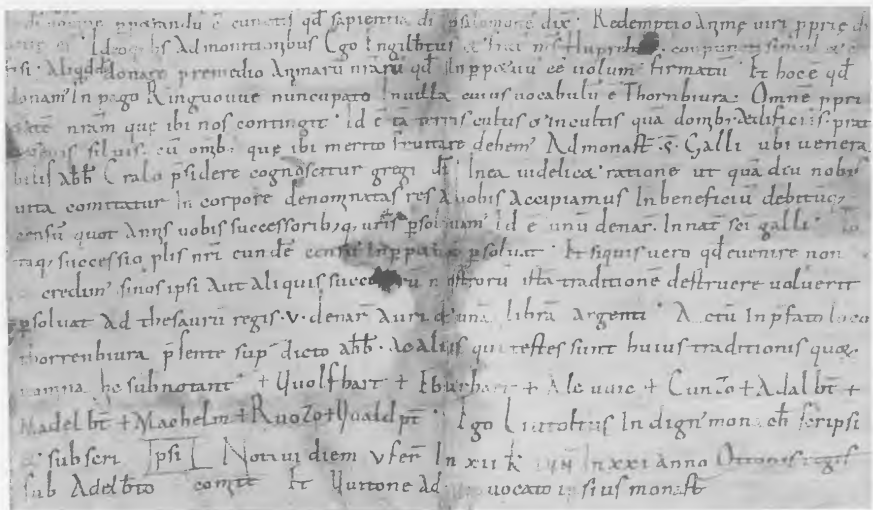 pparandū ē cunctis qđ sapientia di p salomonē dix̄· Redemptio animę uiri ppriẹ di
Ideo his Admonitionibus Ego Ingilbtus &
Aliqđ donare premedio Animarū nr̄arū qđ Inppæuū eē uolum' firmatū· Et hoc ē qđ
donam' In pago Ringouue nuncupato In uilla cuius uocabulū ē Thornbiura· Omnē ppri
&atē nr̄am quę ibi nos contingit· id ē tā terris cultis & incultis quā domibꝫ ædificiis· prat
siluis· cū omibꝫ quę ibi merito fruitare debem' Ad monast̄· s̄· Galli ubi uenera
bilis abb̄ Cralo p̄sidere cognoscitur gregi dī· In ea uidelic& ratione ut quā diu nobis
uita comitatur In corpore denominatas res A uobis Accipiamus In beneficiū debitūqꝫ
censū quot Annis uobis successoribꝫqꝫ uris p̄soluam' id ē unū denar̄· In nat̄ sci galli·
taqꝫ successio plis nr̄i eundē censū Inppætuū psoluat· Et siquis uero qđ euenire non
credim' si nos ipsi Aut Aliquis succ rū nostrorū istā traditionē destruere uoluerit
psoluat Ad thesaurū regis·v·denar̄ Auri & unā librā argenti· Actū In pfato loco
thorrenbiura p̄sente sup dicto abb̄· & aliis qui testes sunt huius traditionis quorꝫ
nomina hę subnotant'· + Uuolfhart + Eburhart + Aleuuic + Cunzo + Adalbt̄ +
Madelbt̄ + Machelm + Ruozo + Uualdpt̄· Ego Liutoltus Indign' monach̄ scripsi
& subscri psi Notaui diem v fer̄ In xii k̄ In xxi anno Ottonis regis
sub Adelbt̄o comite Et Uuitone Aduocato ipsius monast̄